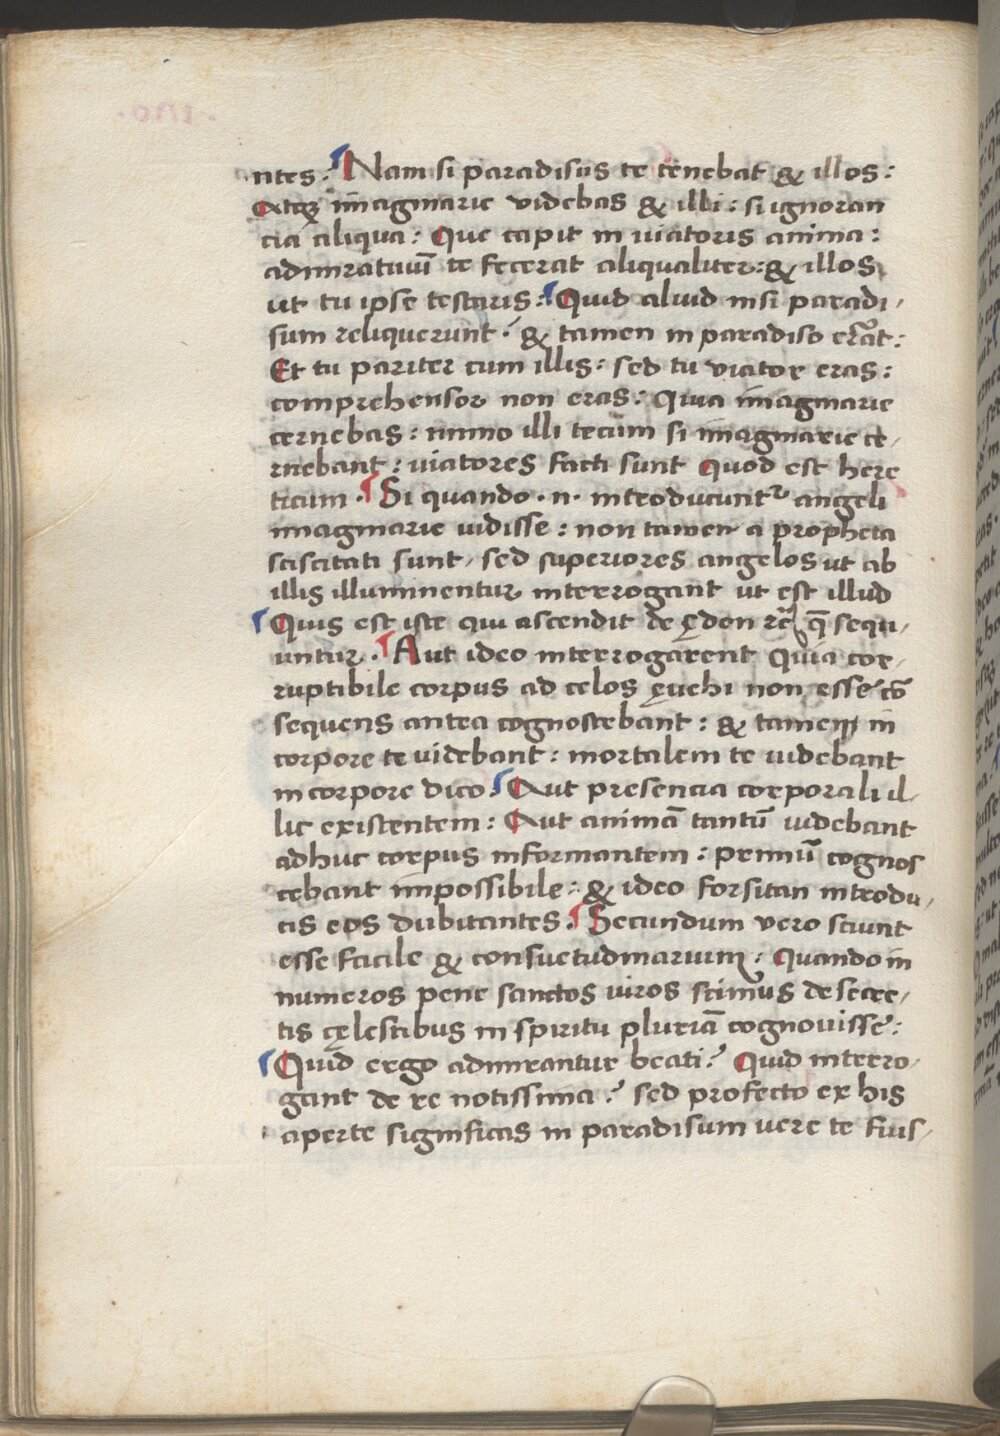 ntes: Nam si paradisus te tenebat & illos:
Atqꝫ imaginarie videbas & illi: si ignoran
cia aliqua: Que capit in viatoris anima:
admiratiuū te fecerat aliqualiter: & illos
ut tu ipse testaris: Quid aliud nisi paradi-
sum reliquerunt? & tamen in paradiso erāt:
Et tu pariter cum illis: sed tu viator eras:
comprehensor non eras: Quia imaginarie
cernebas: immo illi tecum si imaginarie ce-
rnebant: viatores facti sunt Quod est here
ticum. Si quando .n. introducunt᷑ angeli
imaginarie uidisse: non tamen a propheta
sciscitati sunt, sed superiores angelos ut ab
illis illuminentur interrogant ut est illud
Quis est iste qui ascendit de ędon rc̄ q̄ sequ-
untur. Aut ideo interrogarent Quia cor-
ruptibile corpus ad celos ęuehi non esse cō
sequens antea cognoscebant: & tamen in
corpore te videbant: mortalem te uidebant
in corpore dico. Aut presencia corporali il-
lic existentem: Aut animā tantū uidebant
adhuc corpus informantem: primū cognos
cebant impossibile: & ideo forsitan introdu-
cis eos dubitantes. Secundum vero sciunt
esse facile & consuetudinarium. Quando in
numeros pene sanctos viros scimus de secre-
tis cęlestibus in spiritu pluriā cognouisse:
Quid ergo admirantur beati? Quid interro-
gant de re notissima? sed profecto ex his
aperte significas in paradisum uere te fuis-